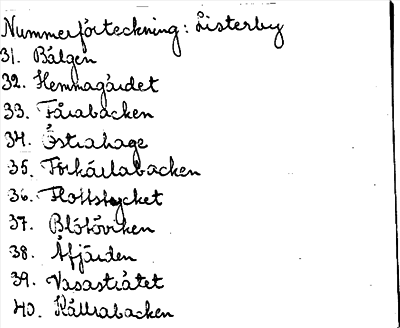 Nummerförteckning: Listerby
31. Bålgen
32. Hemmagärdet
33. Fårabacken
34. Östrahage
35. Förkärlabacken
36. Flottstycket
37. Blötöviken
38. Åfjärden
39. Vasastråtet
40. Källrabacken